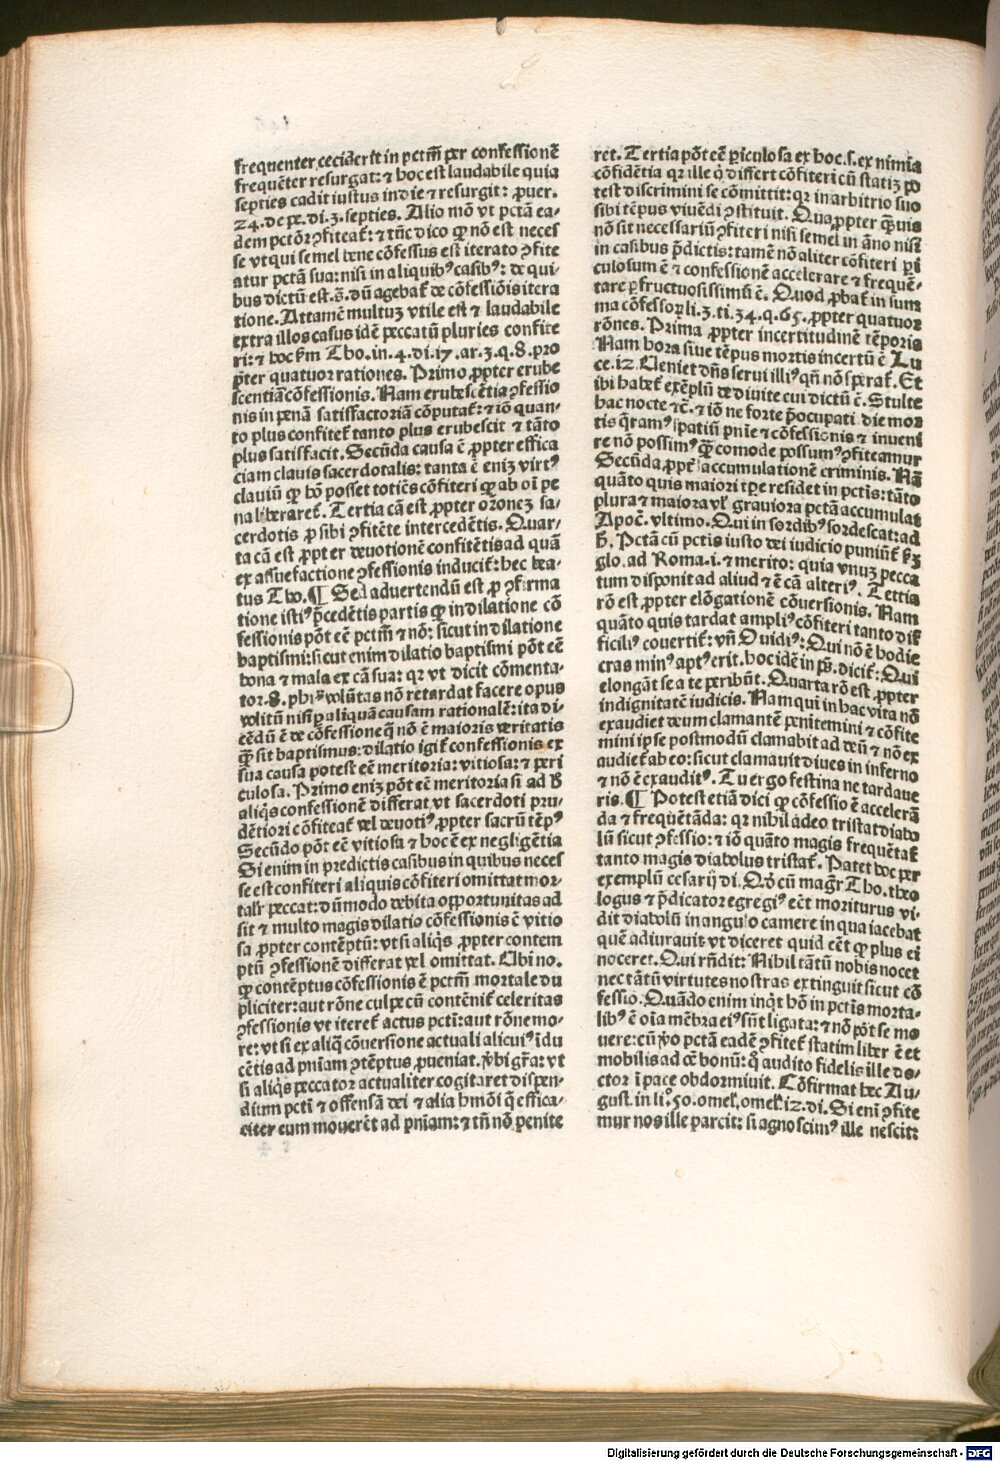 frequenter ceciderīt in pctm̄ per confessionē
frequēter resurgat: ⁊ hoc est laudabile quia
septies cadit iustus in die ⁊ resurgit: ꝓuer.
24. de pe. di. 3. septies. Alio mō vt pctā ea-
dem pctōr ꝯfiteat᷑: ⁊ tūc dico ꝙ nō est neces
se vt qui semel bene cōfessus est iterato ꝯfite
atur pctā sua: nisi in aliquibꝰ casibꝰ: de qui-
bus dictū est. s̄. dū agebat᷑ de cōfessiōis itera
tione. Attamē multuꝫ vtile est ⁊ laudabile
extra illos casus idē peccatū pluries confite
ri: ⁊ hoc ẜm Tho. in. 4. di. 17. ar. 3. q. 8. pro
pter quatuor rationes. Primo ꝓpter erube
scentiā cōfessionis. Nam erubescētia ꝯfessio
nis in penā satisfactoriā cōputat᷑: ⁊ iō quan-
to plus confitet᷑ tanto plus erubescit ⁊ tāto
plus satisfacit. Secūda causa ē ꝓpter effica
ciam clauis sacerdotalis: tanta ē enīꝫ virtꝰ
clauiū ꝙ hō posset totiēs cōfiteri ꝙ ab oī pe
na liberaret᷑. Tertia cā est ꝓpter orōneꝫ sa-
cerdotis ꝓ sibi ꝯfitēte intercedētis. Quar-
ta cā est ꝓpter deuotionē confitētis ad quā
ex assuefactione ꝯfessionis inducit᷑: hec bea-
tus Tho. ¶ Sed aduertendū est ꝓ ꝯfirma
tione istiꝰ p̄cedētis partis ꝙ in dilatione cō
fessionis pōt eē pctm̄ ⁊ nō: sicut in dilatione
baptismi: sicut enim dilatio baptismi pōt eē
bona ⁊ mala ex cā sua: qꝛ vt dicit cōmenta-
tor. 8. phi. volūtas nō retardat facere opus
volitū nisi ꝓ aliquā causam rationalē: ita di-
cēdū ē de cōfessione q̄ nō ē maioris veritatis
ꝙ̄ sit baptismus: dilatio igit᷑ confessionis ex
sua causa potest eē meritoria: vitiosa: ⁊ peri
culosa. Primo enīꝫ pōt eē meritoria si ad h̄
aliq̇s confessionē differat, vt sacerdoti pru-
dētiori cōfiteat᷑ vel deuotiꝰ ꝓpter sacrū tēpꝰ
Secūdo pōt eē vitiosa ⁊ hoc ē ex negligētia
Si enim in predictis casibus in quibus neces
se est confiteri aliquis cōfiteri omittat mor-
talr̄ peccat: dūmodo debita opportunitas ad
sit ⁊ multo magis dilatio cōfessionis ē vitio
sa ꝓpter contēptū: vt si aliq̇s ꝓpter contem
ptū ꝯfessionē differat vel omittat. Ubi no.
ꝙ contēptus cōfessionis ē pctm̄ mortale du
pliciter: aut rōne culpe cū contēnit᷑ celeritas
ꝯfessionis vt iteret᷑ actus pcti: aut rōne mo-
re: vt si ex aliq̄ cōuersione actuali alicuiꝰ īdu
cētis ad pniam ꝯtēptus ꝓueniat. v̓bi gr̄a: vt
si aliq̇s peccator actualiter cogitaret dispen-
dium pcti ⁊ offensā dei ⁊ alia hmōi q̄ effica-
citer eum mouerēt ad pniam: ⁊ tn̄ nō penite
ret. Tertia pōt eē ꝑiculosa ex hoc. s. ex nimia
cōfidētia qꝛ ille q̇ differt cōfiteri cū statiꝫ po
test discrimini se cōmittit: qꝛ in arbitrio suo
sibi tēpus viuēdi ꝯstituit. Quaꝓpter ꝙ̄uis
nō sit necessariū ꝯfiteri nisi semel in āno nisi
in casibus p̄dictis: tamē nō aliter cōfiteri ꝑi
culosum ē ⁊ confessionē accelerare ⁊ frequē-
tare ꝑfructuosissimū ē. Quod ꝓbat᷑ in sum
ma cōfessoꝝ li. 3. ti. 34. q. 65. ꝓpter quatuor
rōnes. Prima ꝓpter incertitudinē tēporis
Nam hora siue tēpus mortis incertū ē Lu
ce. 12. Ueniet dn̄s serui illiꝰ qn̄ nō sperat᷑. Et
ibi habet᷑ exēplū de diuite cui dictū ē. Stulte
hac nocte ⁊c̄. ⁊ iō ne forte p̄ocupati die mor
tis q̄ramꝰ spatiū pnīe ⁊ cōfessionis ⁊ inueni
re nō possimꝰ ꝙ̄ comode possumꝰ ꝯfiteamur
Secūda ꝓpt᷑ accumulationē criminis. Nā
quāto quis maiori tꝑe residet in pctīs: tāto
plura ⁊ maiora vl̓ grauiora pctā accumulat
Apoc̄. vltimo. Qui in sordibꝰ sordescat: ad
h̄. Pctā cū pctis iusto dei iudicio puniūt᷑ ẜꝫ
glo. ad Roma. i. ⁊ merito: quia vnuꝫ pecca
tum disponit ad aliud ⁊ ē cā alteriꝰ. Tertia
rō est ꝓpter elōgationē cōuersionis. Nam
quāto quis tardat ampliꝰ cōfiteri tanto dif
ficiliꝰ couertit᷑: vn̄ Ouidiꝰ: Qui nō ē hodie
cras minꝰ aptꝰ erit. hoc idē in ps̄. dicit᷑: Qui
elongāt se a te peribūt. Quarta rō est ꝓpter
indignitatē iudicis. Nam qui in hac vita nō
exaudiet deum clamantē penitemini ⁊ cōfite
mini ipse postmodū clamabit ad deū ⁊ nō ex
audiet᷑ ab eo: sicut clamauit diues in inferno
⁊ nō ē exauditꝰ. Tu ergo festina ne tardaue
ris. ¶ Potest etiā dici ꝙ cōfessio ē accelerā
da ⁊ frequētāda: qꝛ nihil adeo tristat diabo
lū sicut ꝯfessio: ⁊ iō quāto magis frequētat᷑
tanto magis diabolus tristat᷑. Patet hoc per
exemplū cesarij di. Qd̓ cū magr̄ Tho. theo
logus ⁊ p̄dicator egregiꝰ eēt moriturus vi-
dit diabolū in angulo camere in qua iacebat
quē adiurauit vt diceret quid eēt ꝙ plus ei
noceret. Qui rn̄dit: Nihil tātū nobis nocet
nec tātū virtutes nostras extinguit sicut cō
fessio. Quādo enim inqͥt hō in pctīs morta-
libꝰ ē oīa mēbra eiꝰ sūt ligata: ⁊ nō pōt se mo
uere: cū v̓o pctā eadē ꝯfitet᷑ statim liber ē et
mobilis ad oē bonū: q̊ audito fidelis ille do-
ctor ī pace obdormiuit. Cōfirmat hec Au-
gust. in li. 50. omel. omel. 12. di. Si eni ꝯfite
mur nos ille parcit: si agnoscimꝰ ille nescit:
Digitalisierung gefördert durch die Deutsche Forschungsgemeinschaft - DFG